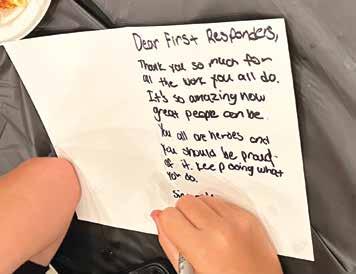 Dear First Responders,
Thank you so much for
all the work you all do.
It's so amazing how
great people can be.
You all are heroes and
you should be proud
of it. Keep doing what
you do.